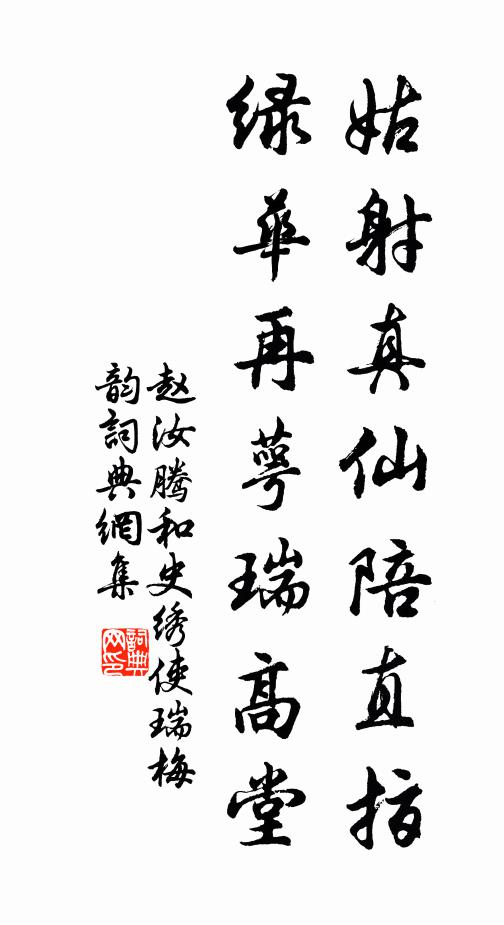 姑射真仙陪直指
绿华再萼瑞高堂
赵汝腾和史绣使瑞梅
韵詞典網集
詞典网印